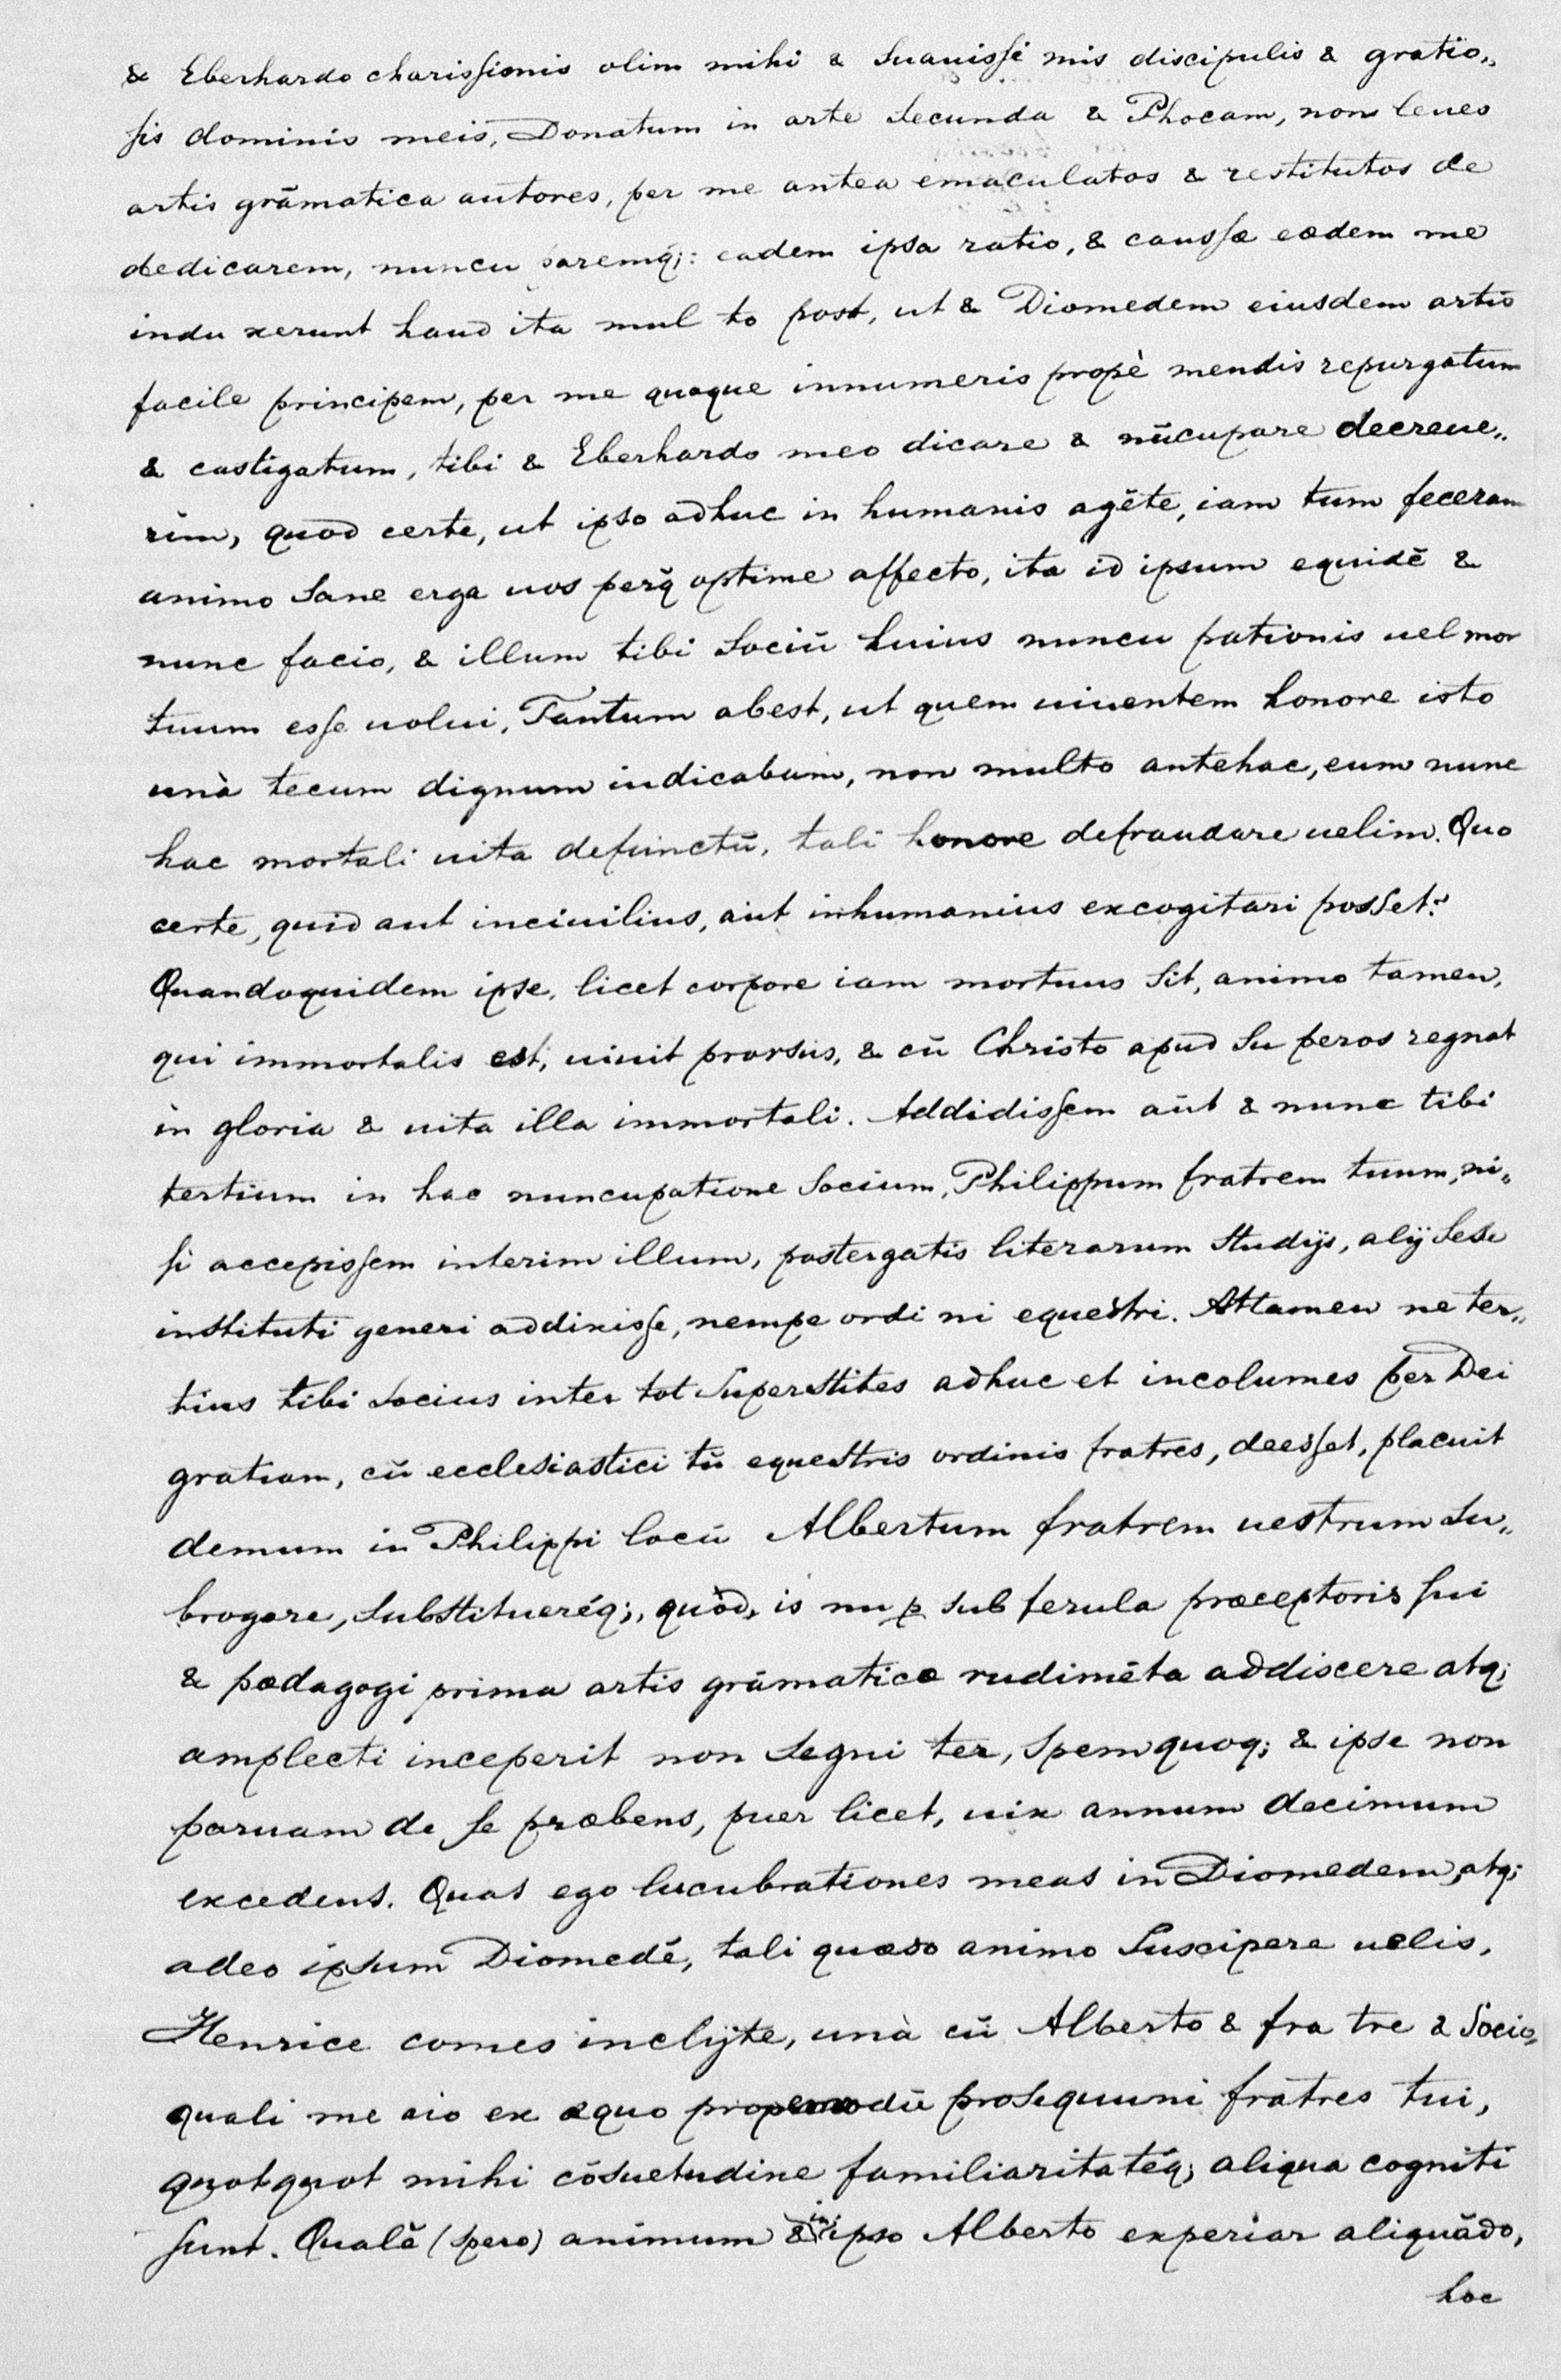 & Eberhardo charisſimis olim mihi & suauisſi mis discipulis & gratio„
ſis dominis meis, Donatum in arte secunda & Phocam, non leues
artis grāmatica autores, per me antea emaculatos & restitutos de
dedicarem, nuncu paremq́;: eadem ipsa ratio, & causſæ eædem me
indu xerunt haud ita mul to post, ut & Diomedem eiusdem artis
facile principem, per me quoque innumeris propè mendis repurgatum
& castigatum, tibi & Eberhardo meo dicare & nūcupare decreue„
rim, quod certe, ut ipso adhuc in humanis agēte, iam tum feceram
animo sane erga uos perq̄ optime affecto, ita id ipsum equidē &
nunc facio, & illum tibi sociū huius nuncu pationis uel mor
tuum esſe uolui, Tantum abest, ut quem uiuentem honore isto
unà tecum dignum iudicabam, non multo antehac, eum nunc
hac mortali uita defunctū, tali honore defraudare uelim. Quo
certe, quid aut inciuilius, aut inhumanius excogitari posset?
Quandoquidem ipse, licet corpore iam mortuus sit, animo tamen,
qui immortalis est, uiuit prorsus, & cū Christo apud su peros regnat
in gloria & uita illa immortali. Addidisſem aūt & nunc tibi
tertium in hac nuncupatione socium, Philippum fratrem tuum, ni„
ſi accepisſem interim illum, postergatis literarum studijs, alij sese
instituti generi addixisſe, nempe ordi ni equestri. Attamen ne ter„
tius tibi socius inter tot superstites adhuc et incolumes per Dei
gratiam, cū ecclesiastici tū equestris ordinis fratres, deesſet, placuit
demum in Philippi locū Albertum fratrem uestrum su„
brogare, substitueréq;, quòd, is nu p̱ sub ferula præceptoris ſui
& pædagogi prima artis grāmaticæ rudimēta addiscere atq;
amplecti inceperit non segni ter, spem quoq; & ipse non
paruam de ſe præbens, puer licet, uix annum decimum
excedens. Quas ego lucubrationes meas in Diomedem, atq;
adeo ipsum Diomedē, tali quæso animo suscipere uelis,
Henrice comes inclyte, unà cū Alberto & fra tre & socio,
quali me aio ex æquo propemodū prosequuni fratres tui,
quotquot mihi cōsuetudine familiaritatéq; aliqua cogniti
ſunt. Qualē (spero) animum & in ipso Alberto experiar aliquādo,
hoc